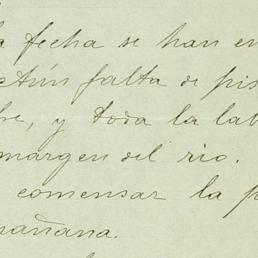 a fecha se han en
ctún falta de pis
bre, y toda la lab
margen del rio.
comensar la p
mañana.